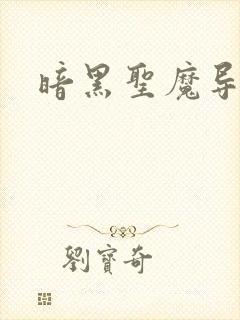 暗黑聖魔导
劉寶奇